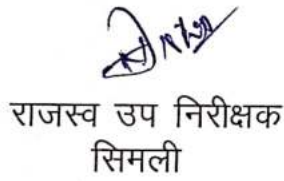 राजस्व उप निरीक्षक
सिमली